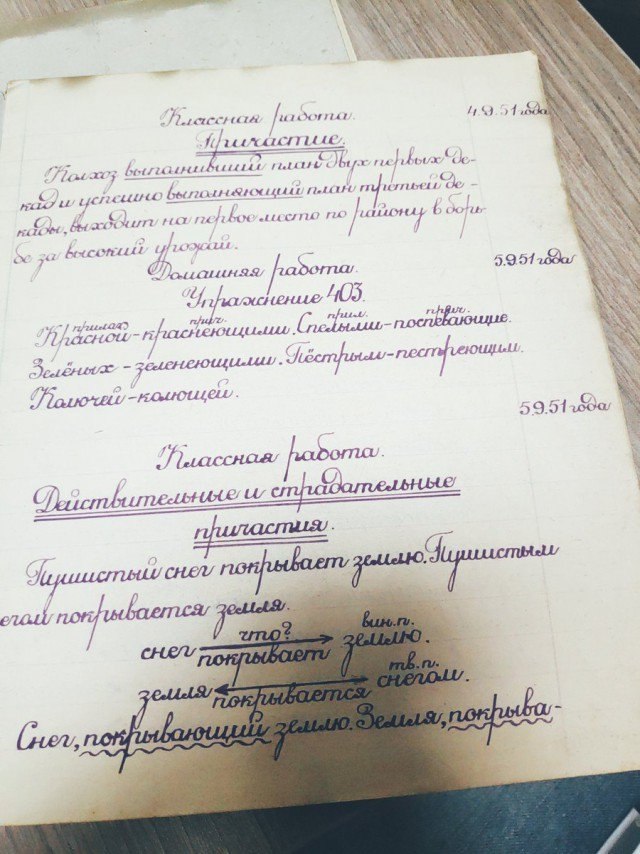 Классная работа.
4.9.51 года
Причастие.
Колхоз выполнивший план двух первых де-
кад и успешно выполняющий план третьей де-
кады, выходит на первое место по району в борь-
бе за высокий урожай.
Домашняя работа.
5.9.51 года
Упражнение 403.
прилаг. прич. прил. прич.
Красной-краснеющими. Спелыми-поспевающие.
Зелёных-зеленеющими. Пёстрым-пестреющим.
Колючей-колющей.
5.9.51 года
Классная работа.
Действительные и страдательные
причастия.
Пушистый снег покрывает землю. Пушистым
снегом покрывается земля.
что? вин.п.
снег покрывает землю.
тв.п.
земля покрывается снегом.
Снег, покрывающий землю. Земля, покрыва-